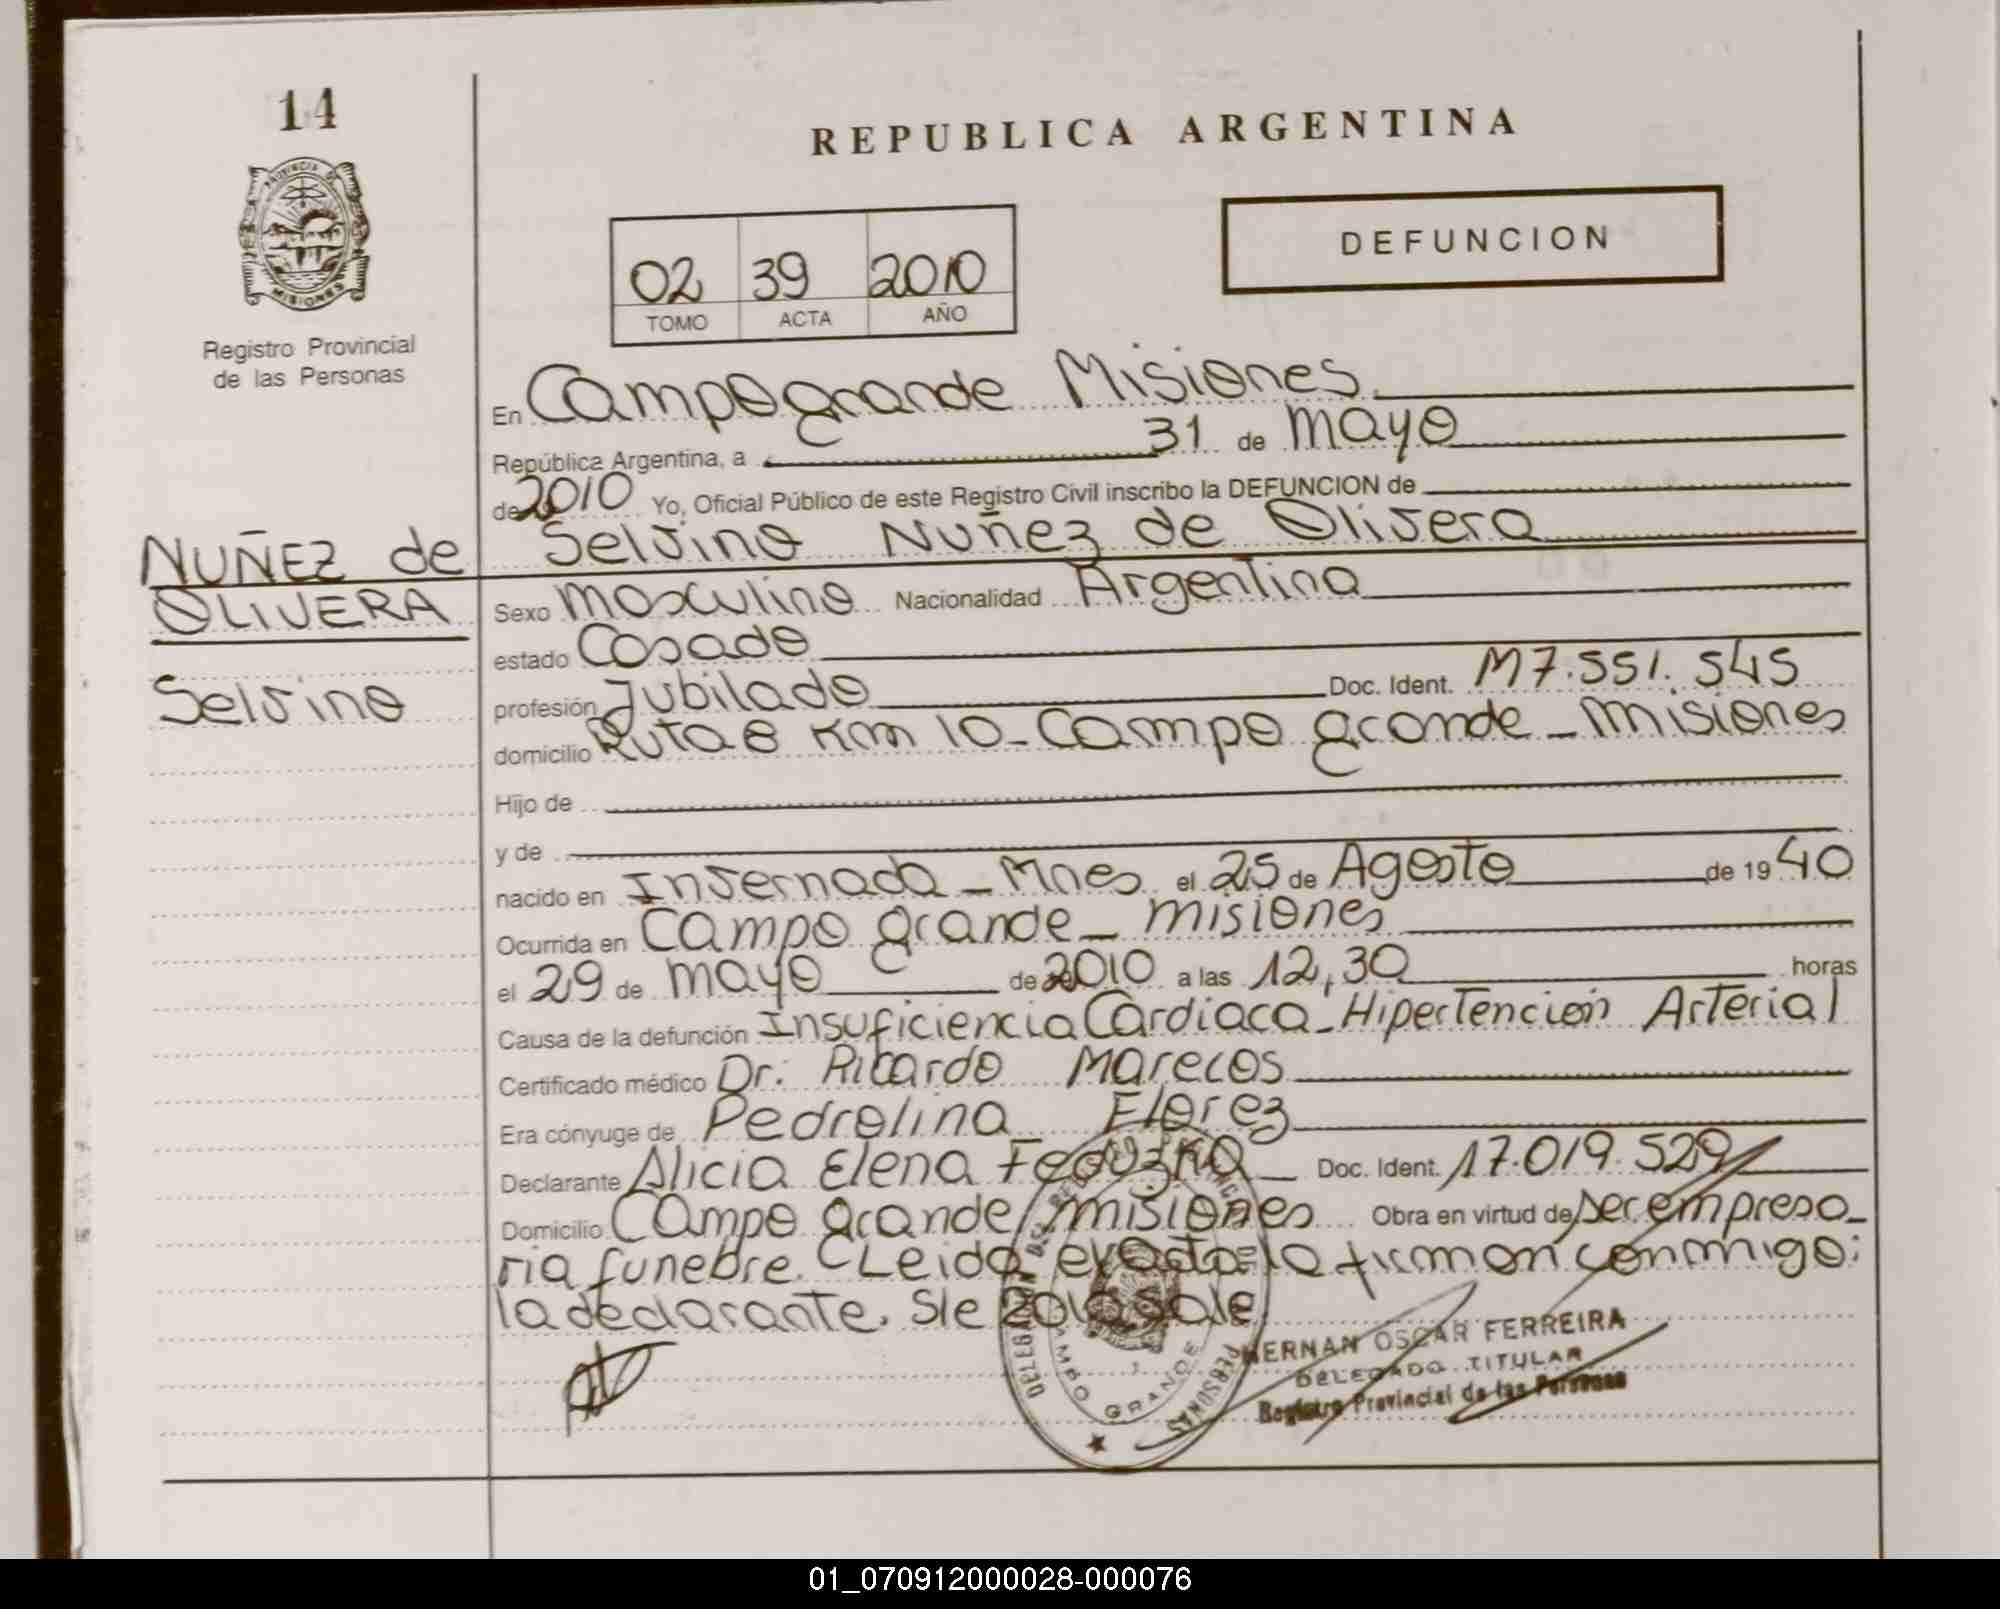 14
PROVINCIA DE
MISIONES
Registro Provincial
de las Personas
REPUBLICA ARGENTINA
02 39 2010
TOMO ACTA AÑO
DEFUNCION
En Campo grande Misiones
República Argentina, a 31 de mayo
de 2010 Yo, Oficial Público de este Registro Civil inscribo la DEFUNCION de
NUÑEZ de
OLIVERA
Selvino
Selvino Nuñez de Olivera
Sexo masculino Nacionalidad Argentina
estado Casado
profesión Jubilado Doc. Ident. M7.551.545
domicilio Ruta 8 Km 10 - Campo grande - misiones
Hijo de
y de
nacido en Invernada - Mnes el 25 de Agosto de 1940
Ocurrida en Campo grande - misiones
el 29 de mayo de 2010 a las 12,30 horas
Causa de la defunción Insuficiencia Cardiaca - Hipertención Arterial
Certificado médico Dr. Ricardo Marecos
Era cónyuge de Pedrolina Florez
Declarante Alicia Elena Feduzka Doc. Ident. 17.019.529
Domicilio Campo grande misiones Obra en virtud de ser empresa-
ria funebre. Leida el acta la firman conmigo:
la declarante. S/e 2010 vale
CAMPO GRANDE
HERNAN OSCAR FERREIRA
DELEGADO TITULAR
Registro Provincial de las Personas
01_070912000028-000076